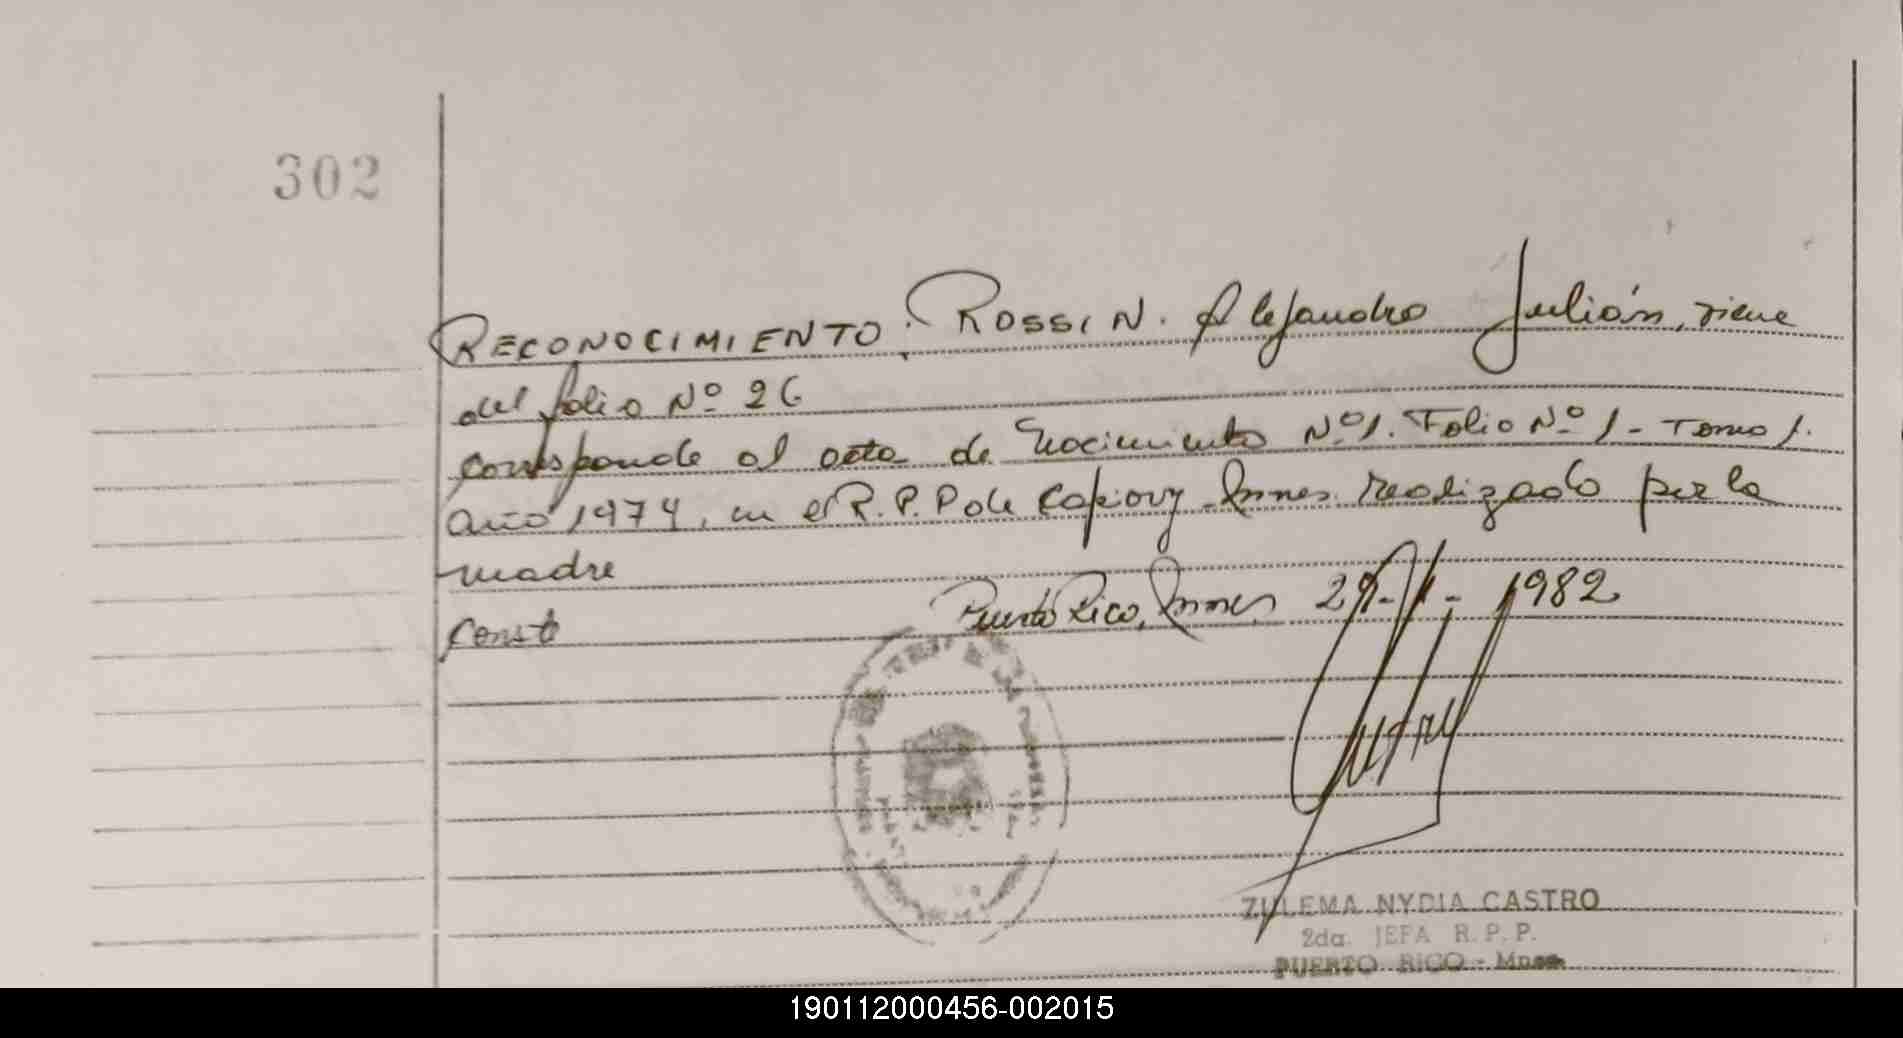 302
RECONOCIMIENTO: ROSSIN. Alejandro Julián, viene
del folio Nº 26
corresponde al acta de Nacimiento Nº 1. Folio Nº 1 - Tomo 1.
año 1974, en el R.P.P de Capiovy - Mnes. realizado por la
madre
Conste
Puerto Rico, Mnes, 29-11-1982
ZULEMA NYDIA CASTRO
2da. JEFA R.P.P.
PUERTO RICO - Mnes.
190112000456-002015